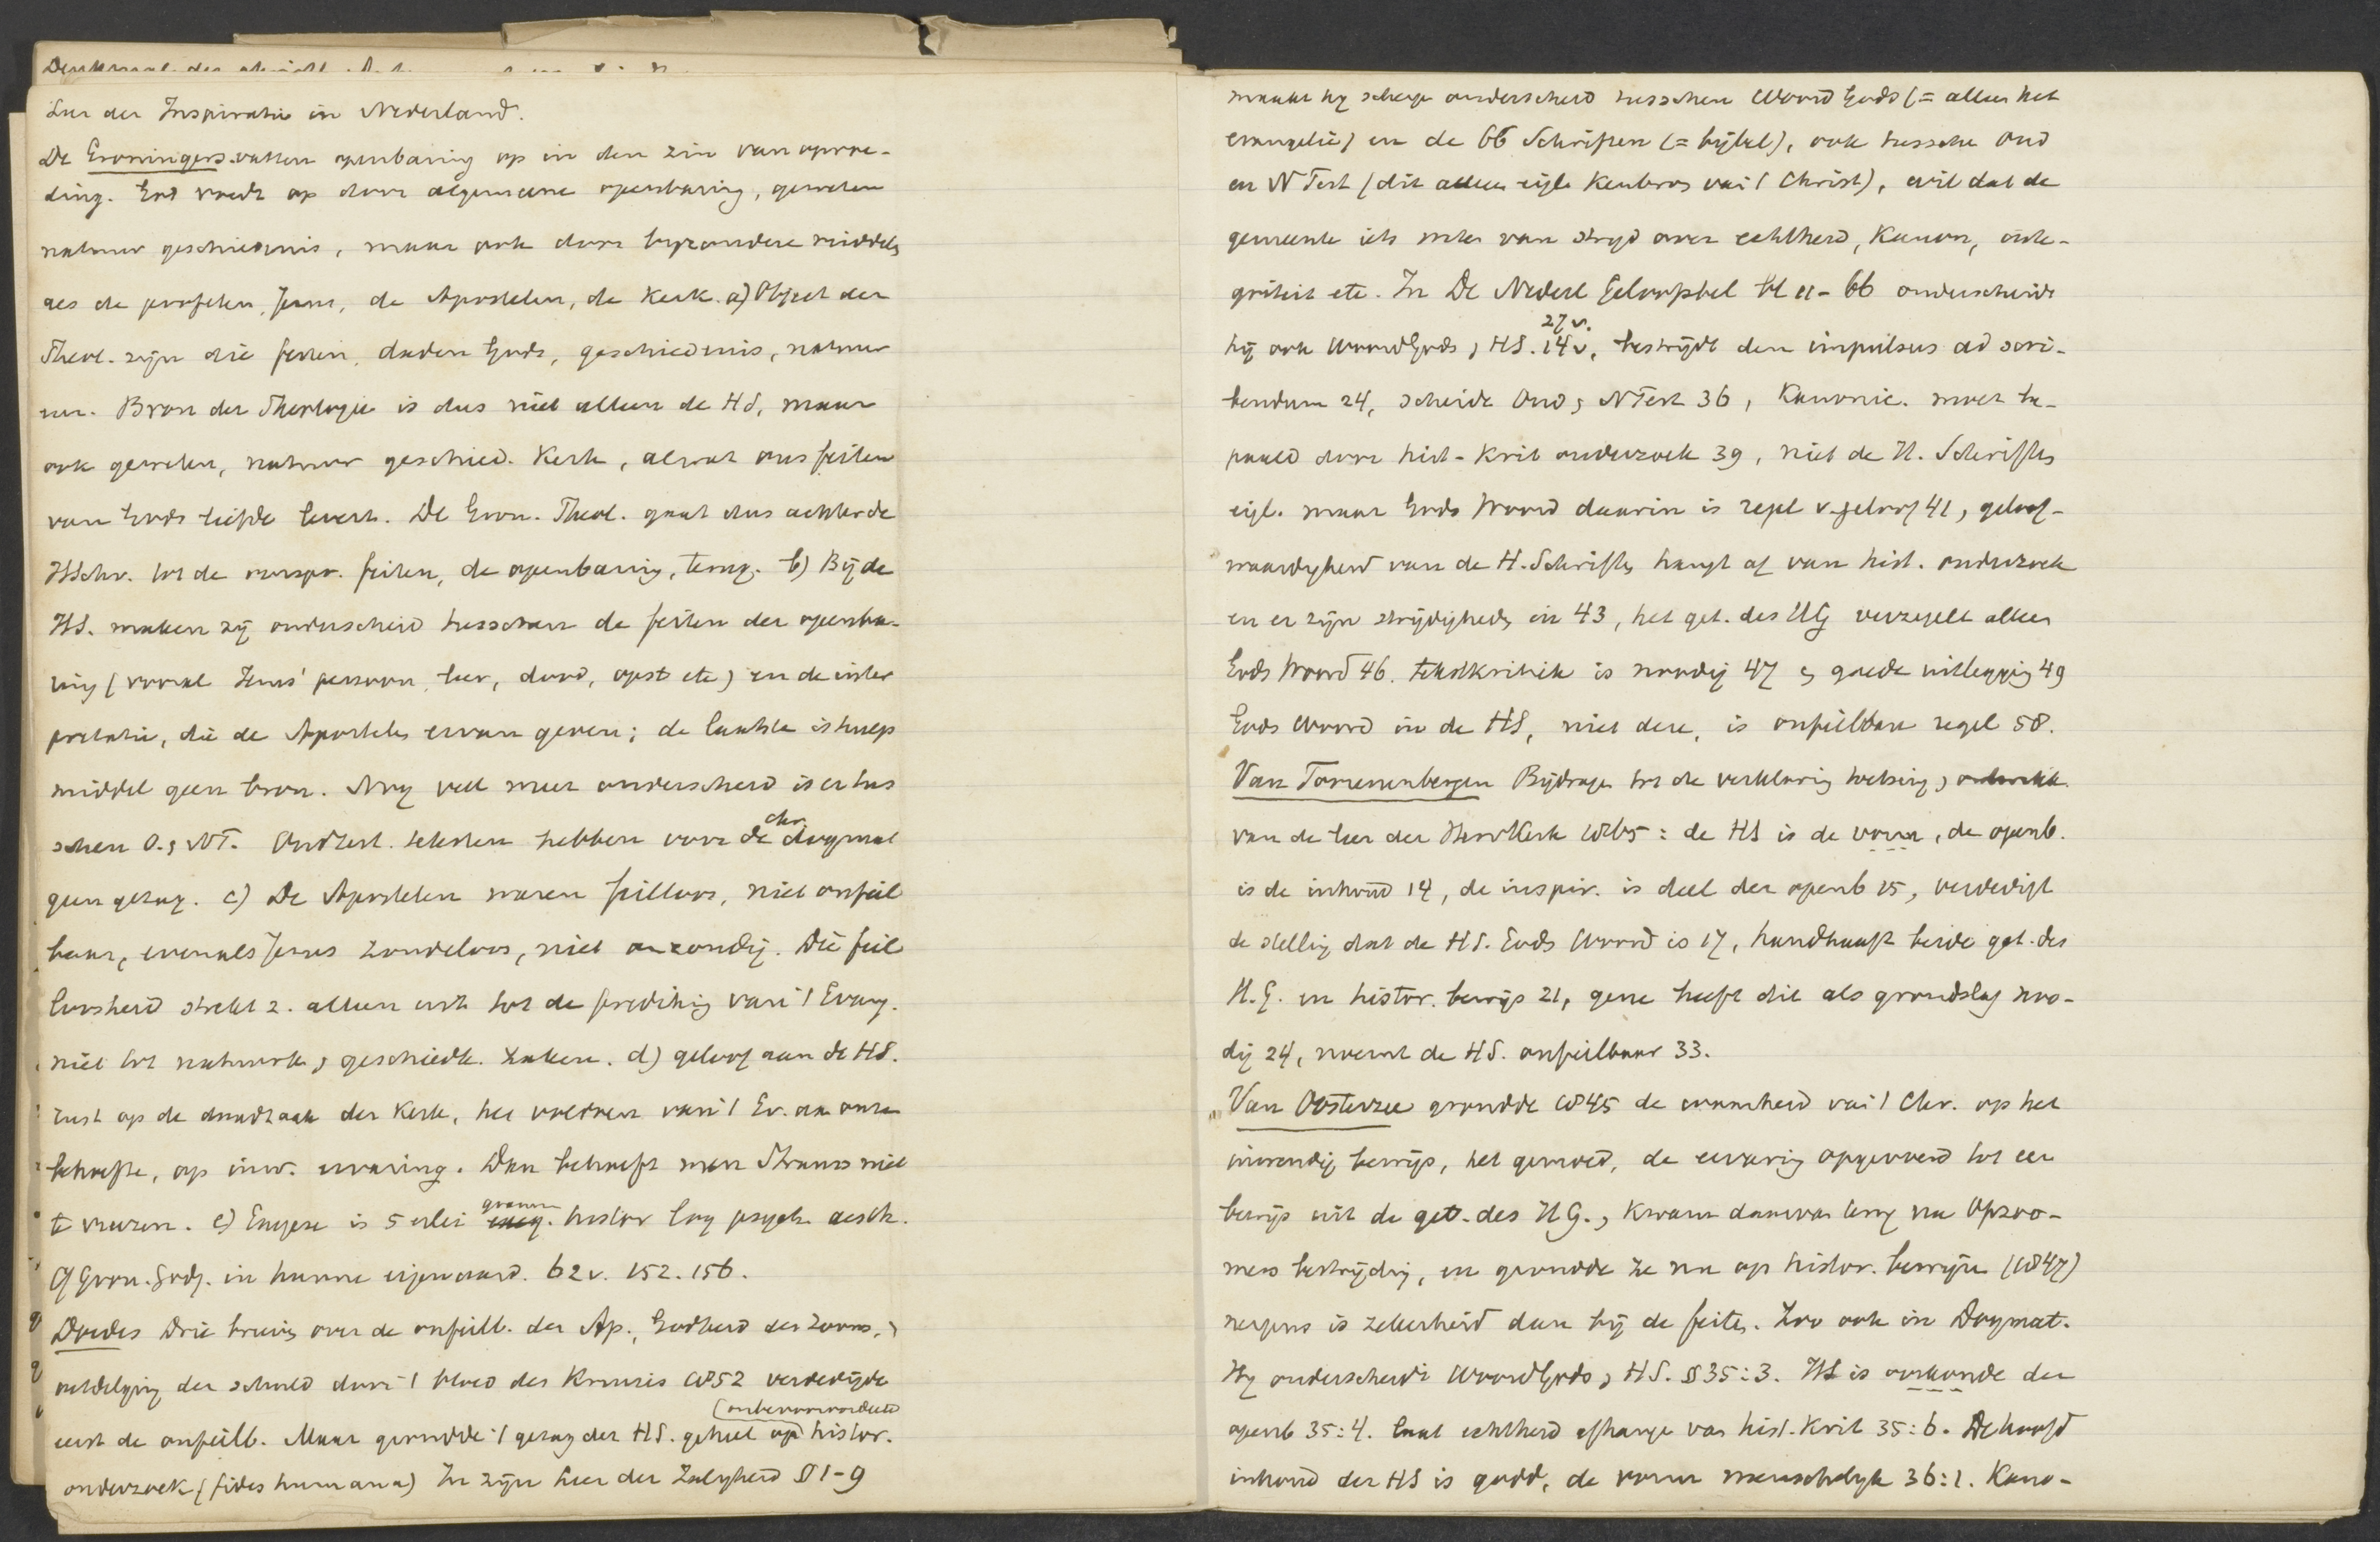 Leer der Inspiratie in Nederland.
De Groningers vatten openbaring op in den zin van opvoe-
ding. God voedt op door algemeene openbaring, geweten
natuur geschiedenis, maar ook door byzondere middels
als de profeten, Jezus, de Apostelen, de Kerk. a) Object der
Theol. zijn die feiten, daden Gods, geschiedenis, natuur
enz. Bron der Theologie is dus niet alleen de HS, maar
ook geweten, natuur geschied. Kerk, al wat ons feiten
van Gods liefde levert. De Gron. Theol. gaat dus achter de
HSchr. tot de oorspr. feiten, de openbaring, terug. b) Bij de
HS. maken zij onderscheid tusschen de feiten der openba-
ring (vooral Jezus' persoon, leer, dood, opst etc) en de inter
pretatie, die de Apostelen ervan geven; de laatste is hulp
middel geen bron. Nog veel meer onderscheid is er tus
schen O. & NT. Oudtest. teksten hebben voor de chr. dogmat
geen gezag. c) De Apostelen waren feilloos, niet onfeil
baar, evenals Jezus zondeloos, niet onzondig. Die feil
loosheid strekt z. alleen uit tot de prediking van 't Evang.
niet tot natuurk. & geschiedk. zaken. d) geloof aan de HS.
rust op de daadzaak der Kerk, het voldoen van 't Ev. aan onze
behoefte, op inw. ervaring. Dan behoeft men Strauss niet
te vreezen. e) Exegese is 5 erlei gramm. histor log psych. aesth.
Cf Gron. Godg. in hunne eigenaard. 62 v. 152. 156.
Doedes Drie brieven over de onfeilb. der Ap., Godheid des Zoons, &
uitdelging der schuld door 't bloed des Kruises 1852 verdedigde
eerst de onfeilb. Maar grondde 't gezag der HS. geheel (onbevooroordeeld op histor.
onderzoek (fides humana) In zijn Leer der Zaligheid § 1-9
maakt hy scherp onderscheid tusschen Woord Gods (= alleen het
evangelie) en de 66 Schriften (= bijbel), ook tussche Oud
en N Test (dit alleen eigl. Kenbron van 't Christ), wil dat de
gemeente iets wete van stryd over echtheid, Kanon, inte-
griteit etc. In De Nederl Geloofsbel bl 11-66 onderscheidt
hij ook Woord Gods & HS. 14 v, 27 v. bestrijdt den impulsus ad scri-
bendum 24, scheidt Oud & N Test 36, Kanonic. moet be-
paald door hist-krit onderzoek 39, niet de H. Schriften
eigl. maar Gods Woord daarin is regel v. geloof 41, geloof-
waardigheid van de H. Schriften hangt af van hist. onderzoek
en er zijn strijdigheden in 43, het get. des HG verzegelt alleen
Gods Woord 46. tekstkritiek is noodig 47 & goede uitlegging 49
Gods Woord in de HS, niet deze, is onfeilbare regel 58.
Van Toorenenbergen Bijdrage tot de verklaring toetsing & ontwikk.
van de leer der Herv Kerk 1865: de HS is de vorm, de openb.
is de inhoud 14, de inspir. is deel der openb 15, verdedigt
de stelling dat de HS. Gods Woord is 17, handhaaft beide get. des
H. G. en histor. bewijs 21, gene heeft dit als grondslag noo-
dig 24, noemt de HS. onfeilbaar 33.
Van Oosterzee grondde 1845 de waarheid van 't Chr. op het
inwendig bewijs, het gemoed, de ervaring opgevoerd tot een
bewijs uit de get. des H G., kwam daarvan terug na Opzoo-
mers bestrijding, en grondde ze nu op histor. bewijzen (1847)
nergens is zekerheid dan bij de feiten. Zoo ook in Dogmat.
Hy onderscheidt Woord Gods & HS. § 35:3. HS is oorkonde der
openb 35:4. laat echtheid afhange van hist. krit 35:6. De hoofd
inhoud der HS is godd, de vorm menschelyk 36:1. Kano-